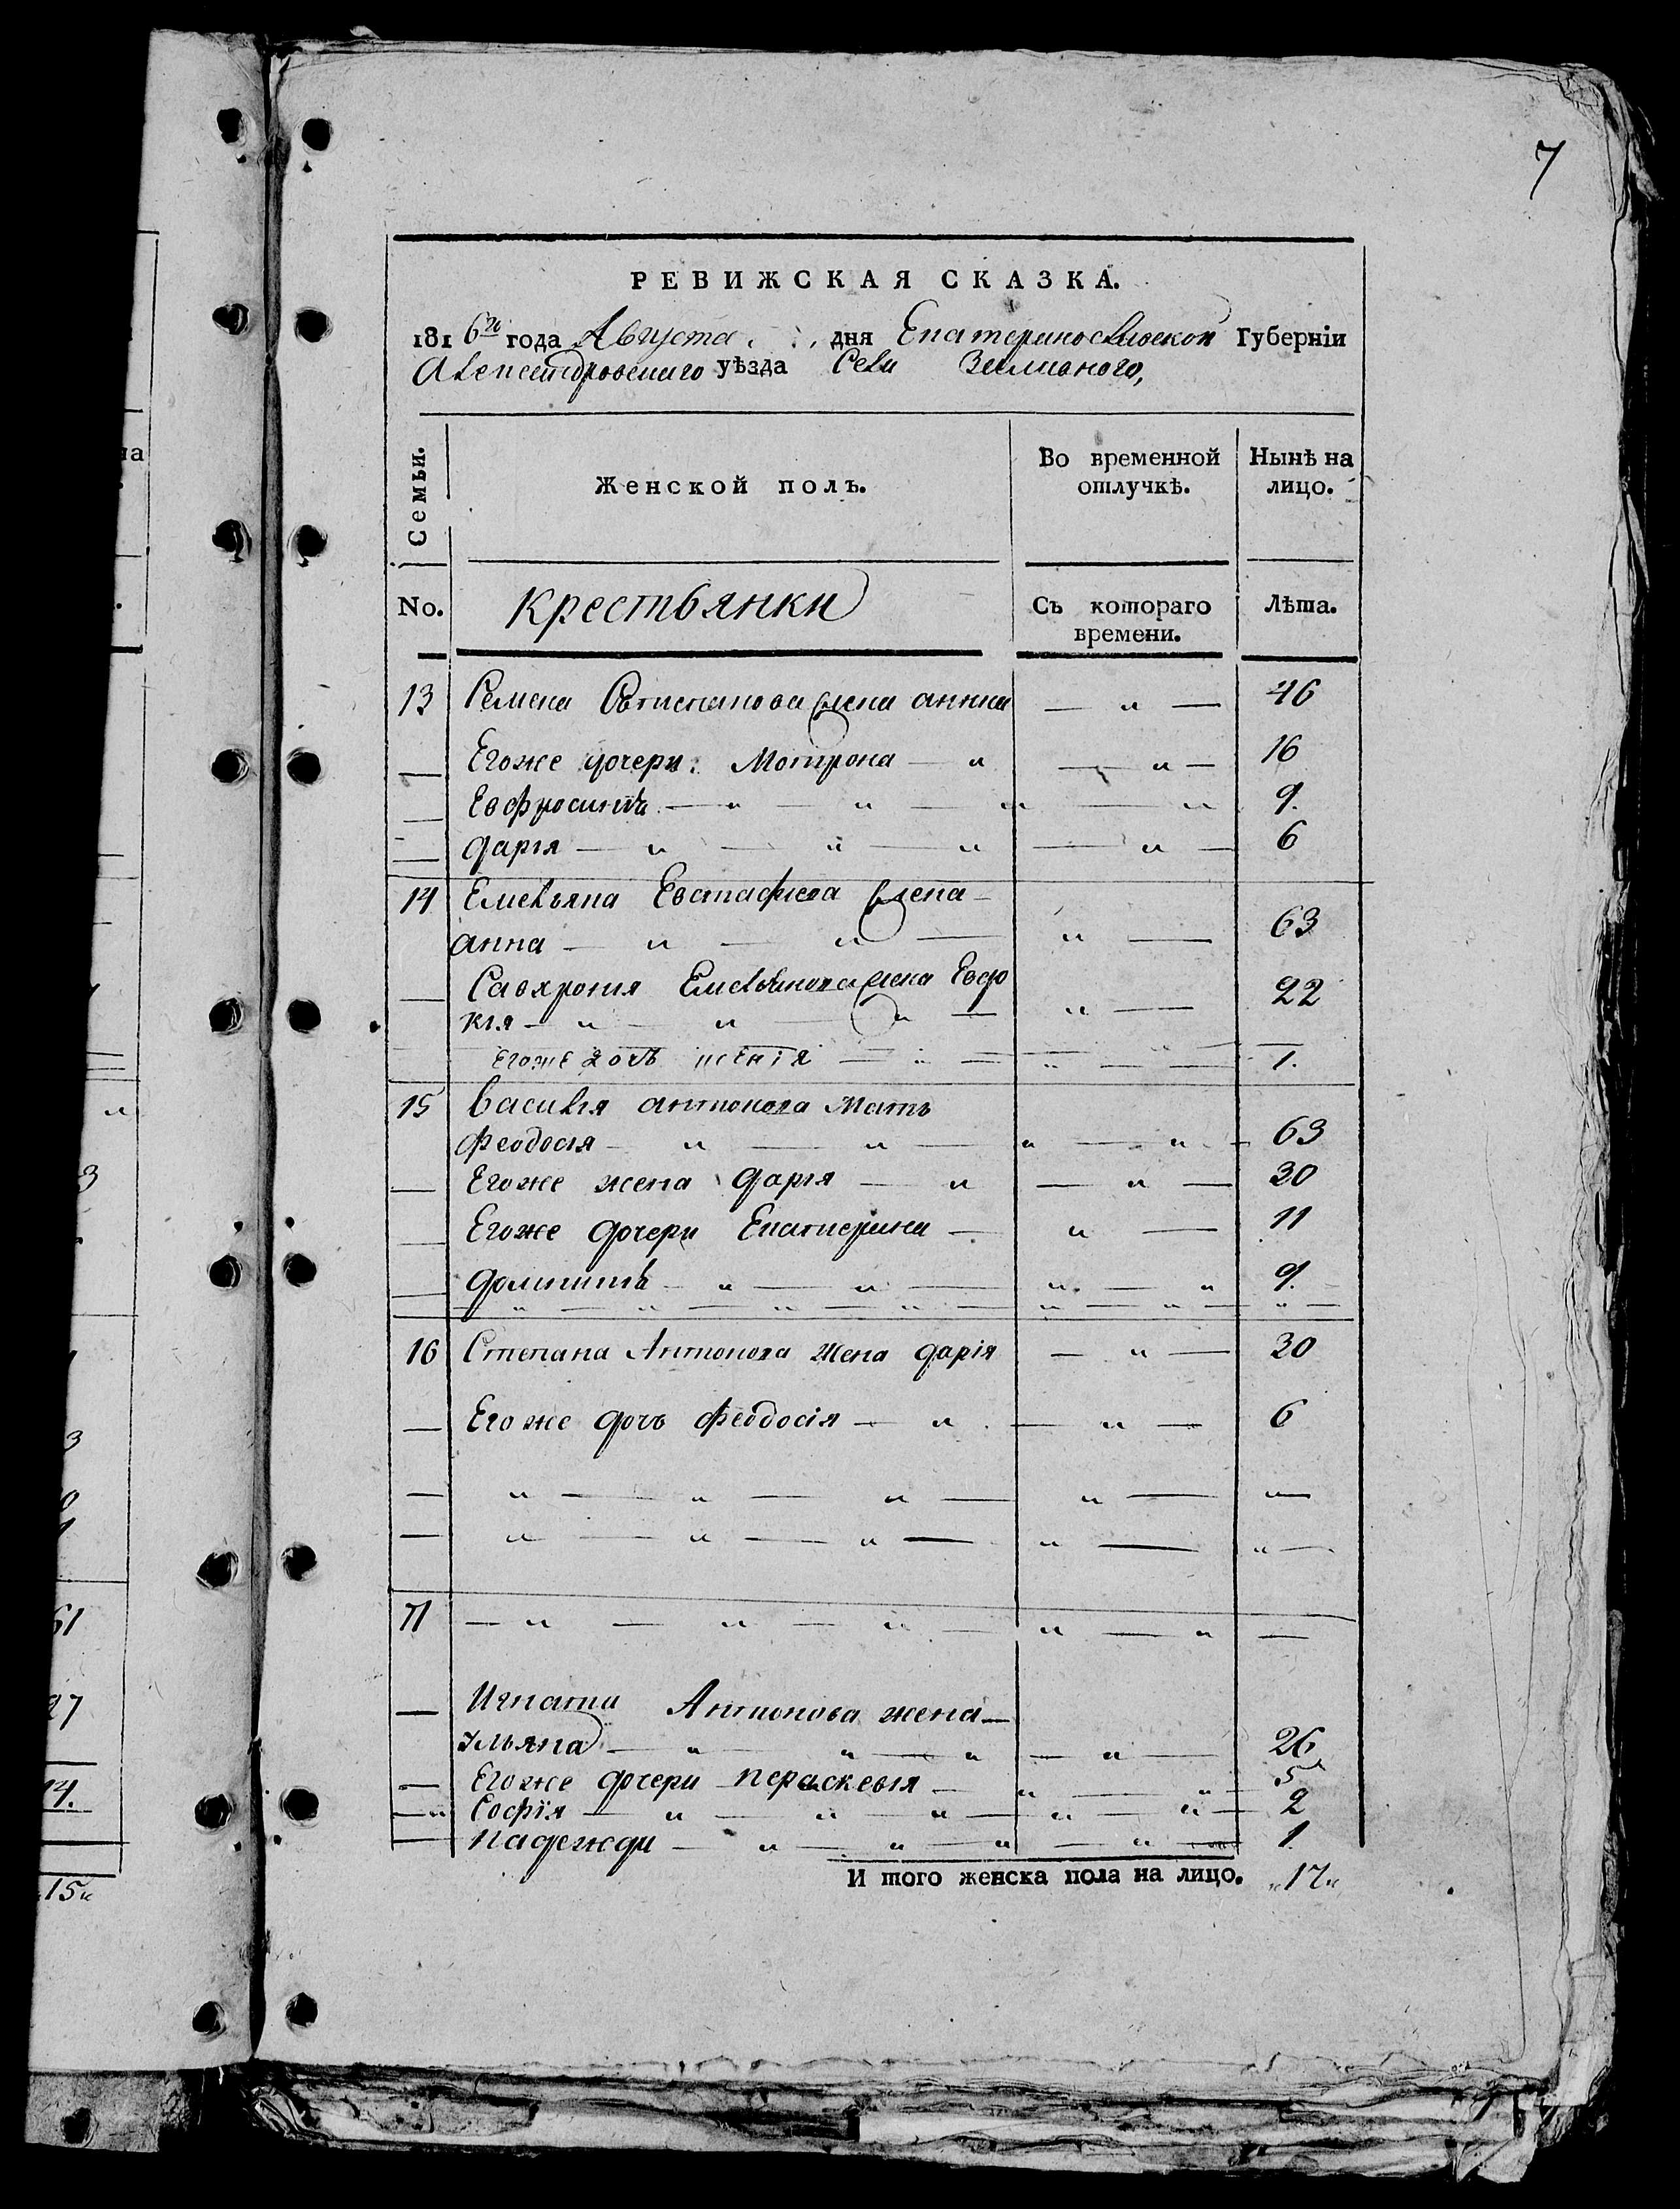 7
РЕВИЖСКАЯ СКАЗКА.
1816го года Августа дня Екатеринославской Губернїи
Александровскаго уѣзда Села
Семьи. Женской полъ. Во временной отлучкѣ. Нынѣ на лицо.
No. Крестьянки Съ котораго времени. Лѣта.
13 Семена жена анна — „ — 46
Егоже дочери: Мотрона — „ — „ — 16
Евфросинїя — „ — „ — „ — „ 9.
дарїя — „ — „ — „ — „ — 6
14 Емельяна Евстафиева жена —
анна — „ — „ — „ — 63
Емельянова жена Евдо
кїя — „ — „ — „ — „ — 22
Егоже дочь — „ — „ — 1.
15 Василїя антонова мать
феодосїя — „ — „ — „ — „ — 63
Егоже жена дарїя — „ — „ — 30
Егоже дочери Екатерина — „ — 11
— „ — „ — „ — „ 9.
— „ — „ — „ — „ — „ — „ — „ —
16 Степана Антонова жена дарїя — „ — 30
Егоже дочь феодосїя — „ — „ — 6
— „ — „ — „ — „ — „ —
— „ — „ — „ — „ — „ —
— „ — „ — „ — „ — „ —
— Игнатия Антонова жена —
ульяна — „ — „ — „ — „ — 26
— Егоже дочери пераскевїя — „ — „ — 5
— „ Софїя — „ — „ — „ — „ — „ — 2
— надежди — „ — „ — „ — „ — 1
И того женска пола на лицо. „17„
61
27
14.
„15„